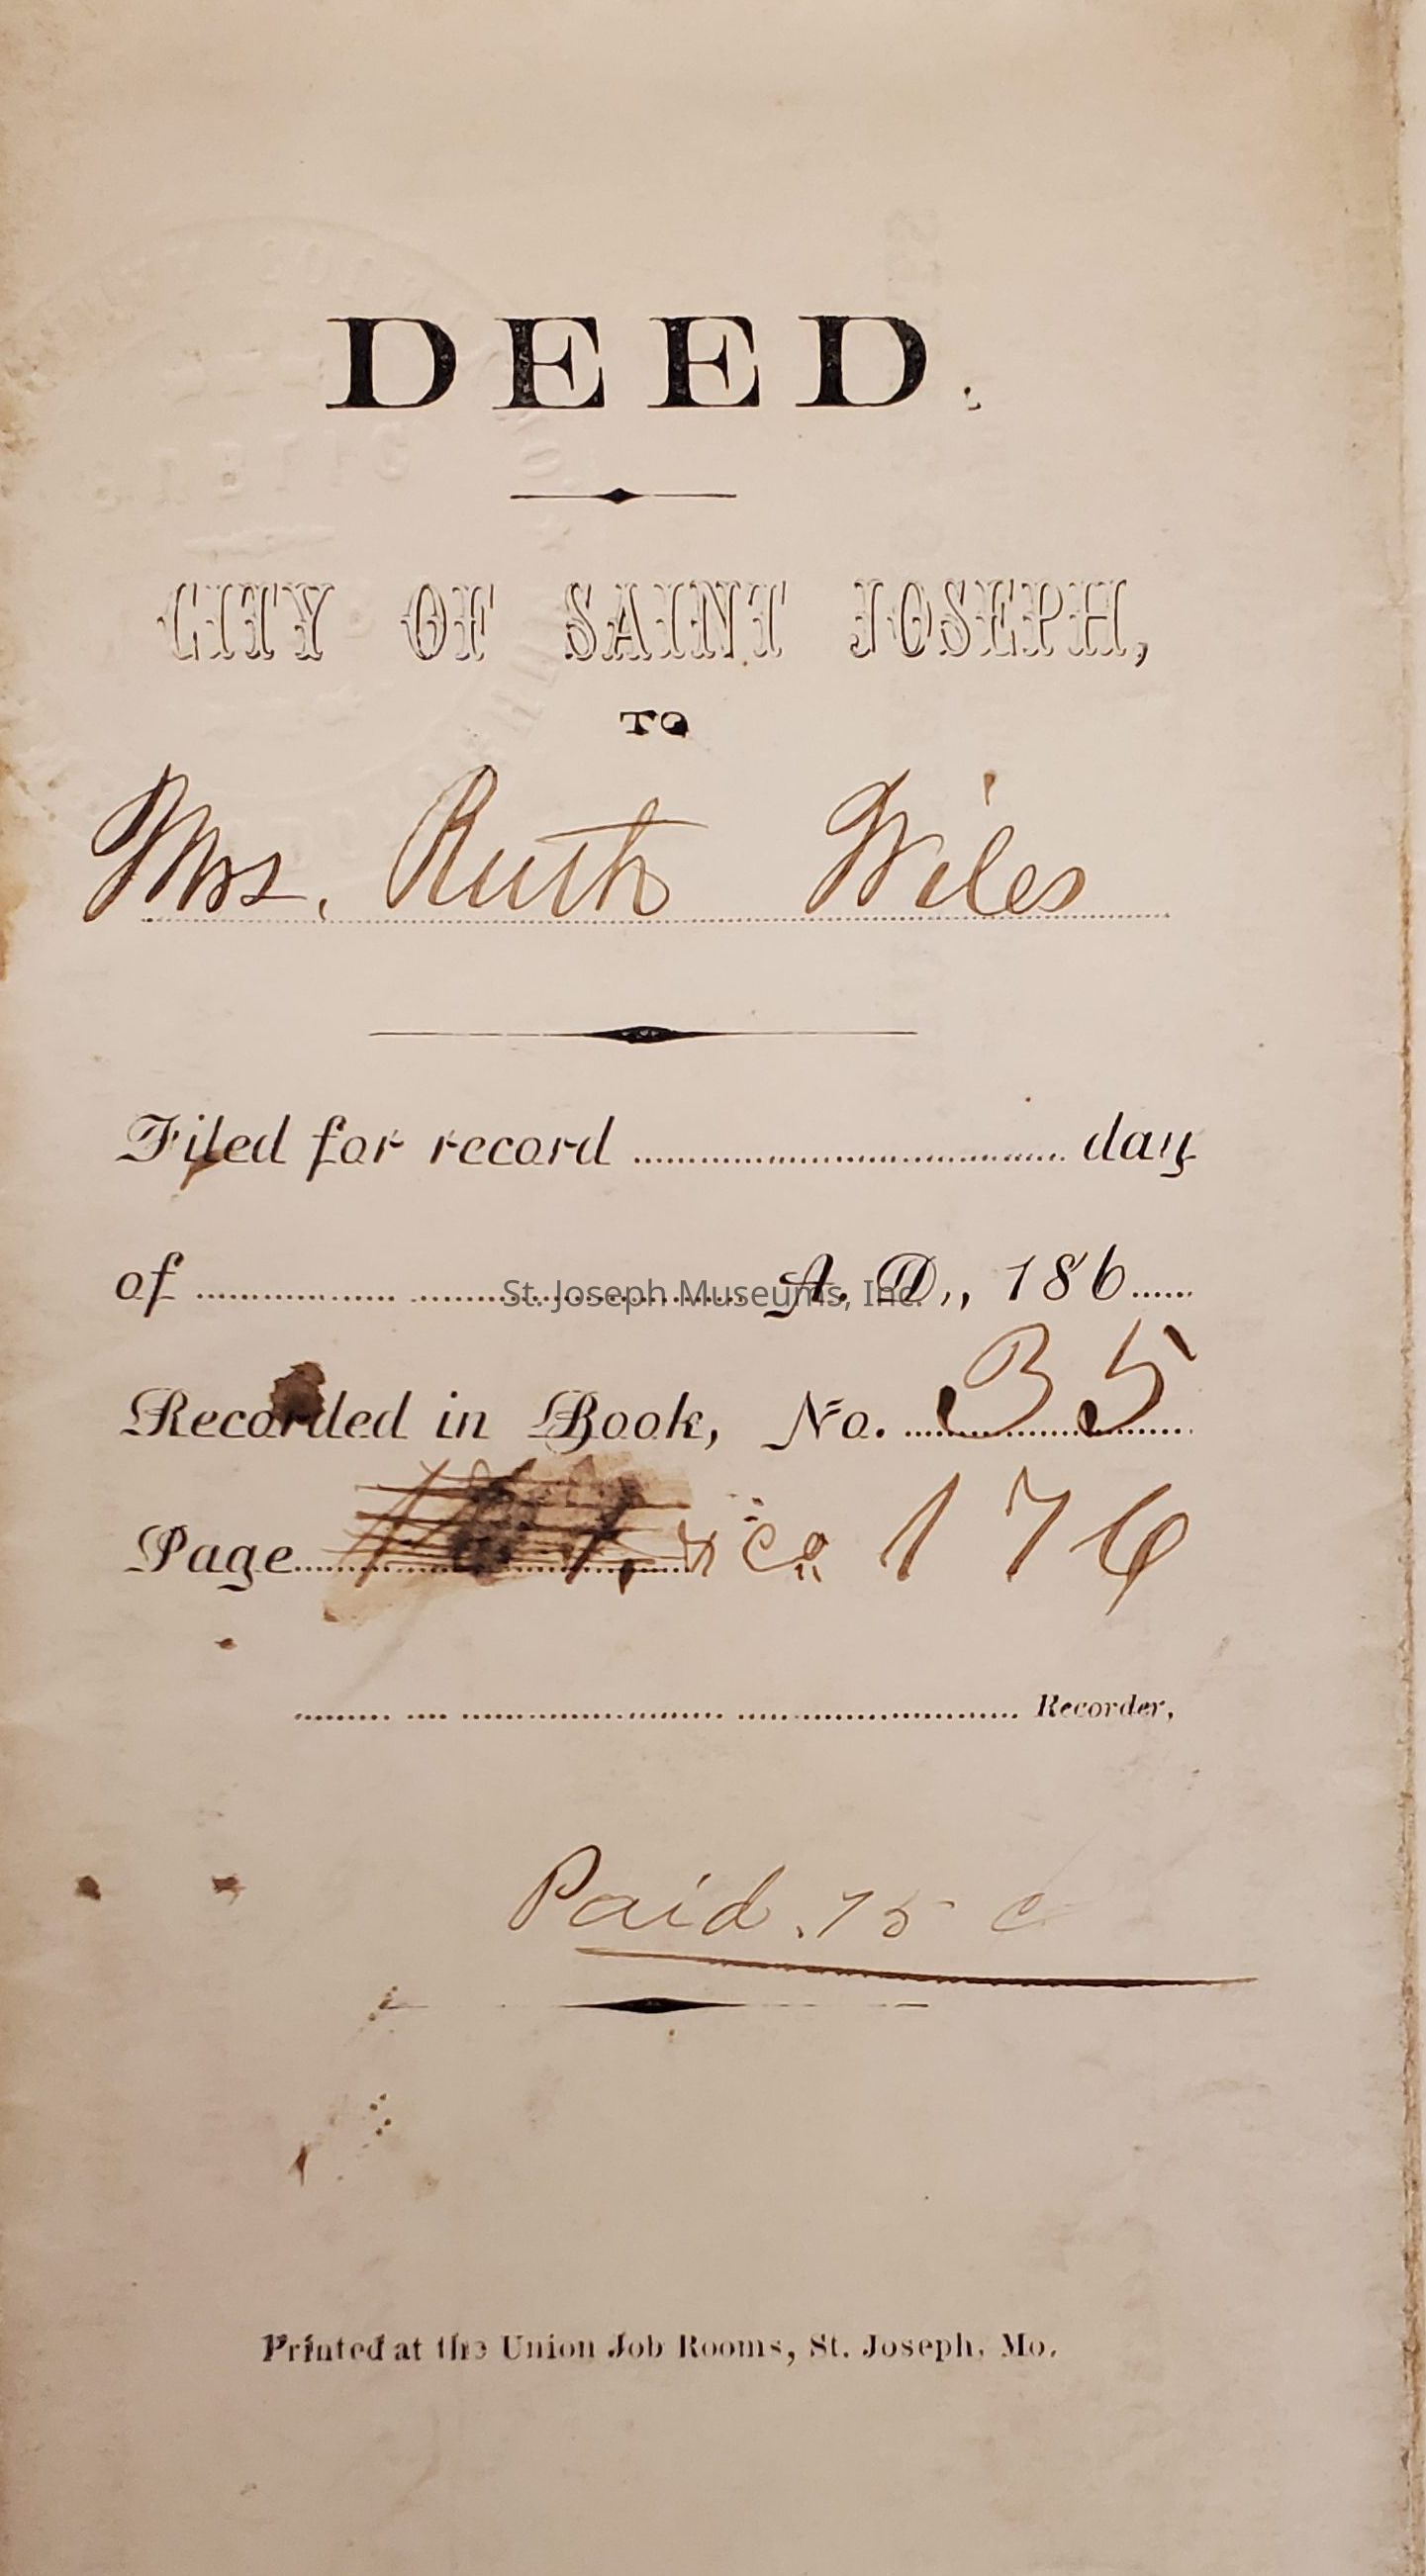 DEED.
CITY OF SAINT JOSEPH,
TO
Mrs. Ruth Wiles
Filed for record day
of A. D., 186
St. Joseph Museums, Inc.
Recorded in Book, No. 35
Page 176
Recorder,
Paid .75 c
Printed at the Union Job Rooms, St. Joseph, Mo.